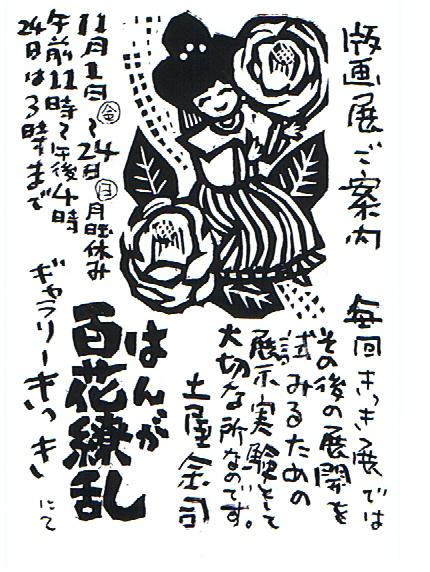 版画展ご案内
毎回きっき展では
その後の展開を
試みるための
展示実験として
大切な所なのです。
土屋金司
11月1日㊎~24日㊐月曜休み
午前11時~午後4時
24日は3時まで
はんが
百花繚乱
ギャラリーきっきにて